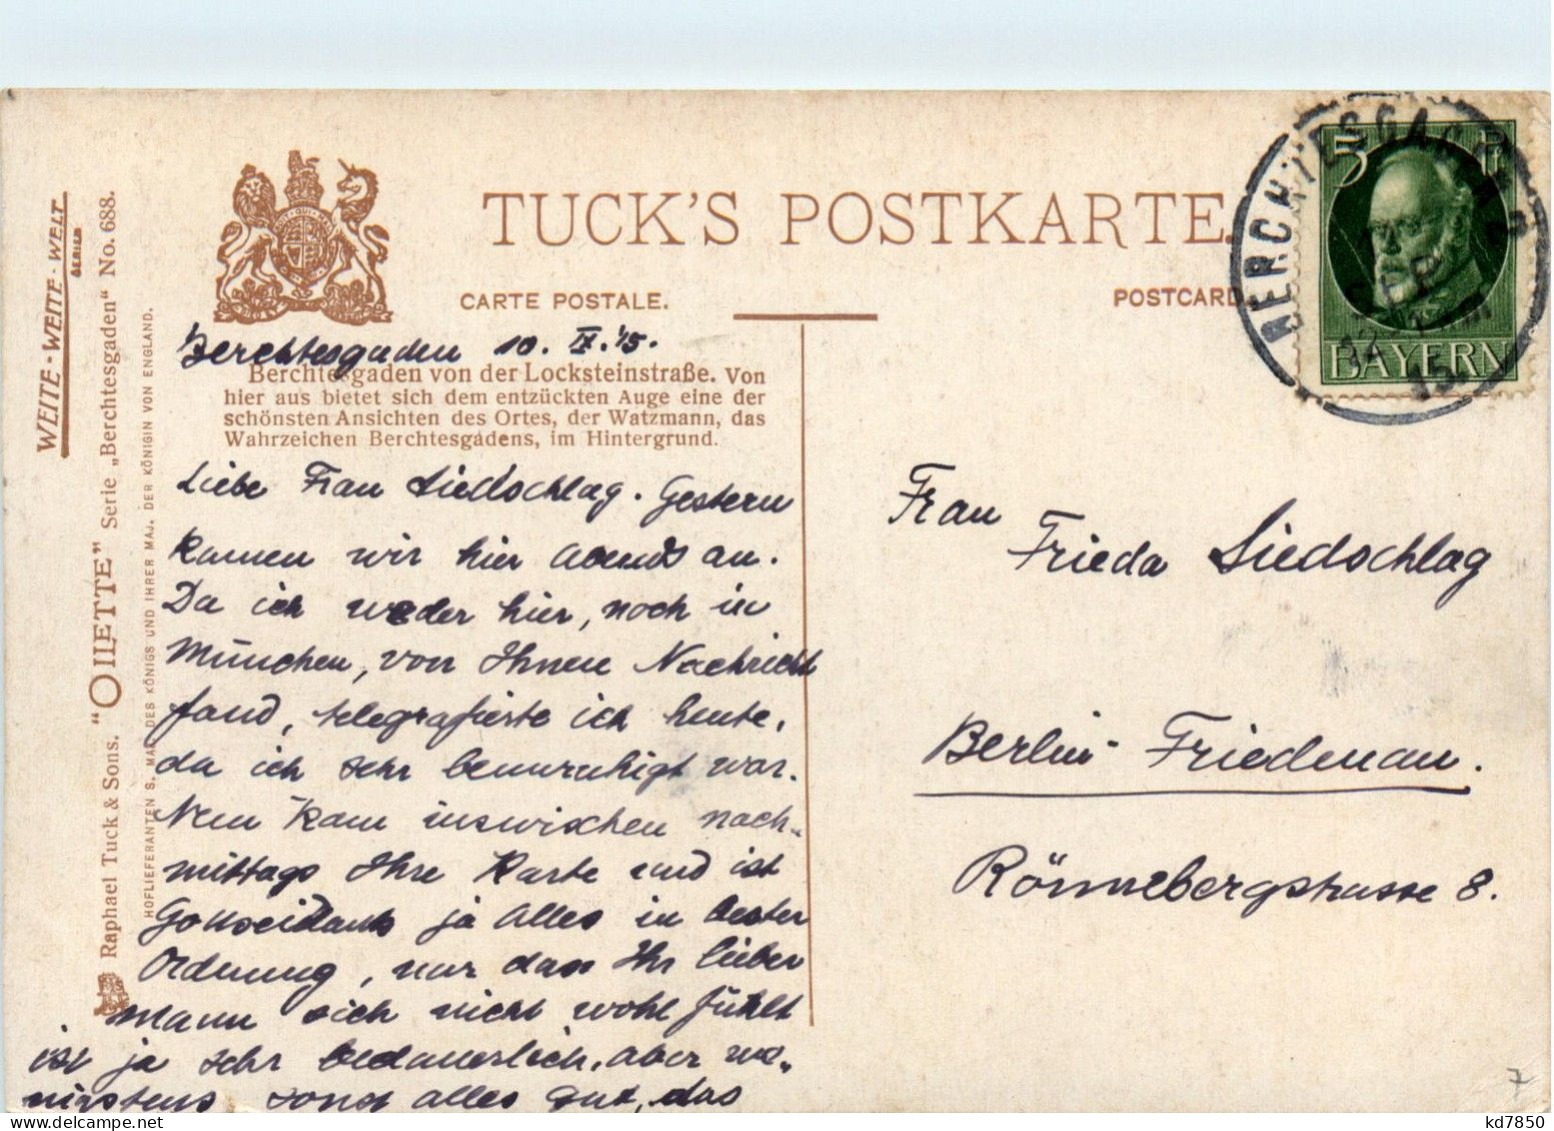 TUCK'S POSTKARTE
CARTE POSTALE.
POSTCARD
WEITE-WEITE-WELT
SERIEN
Raphael Tuck & Sons. "OILETTE" Serie „Berchtesgaden" No. 688.
HOFLIEFERANTEN S. MAJ. DES KÖNIGS UND IHRER MAJ. DER KÖNIGIN VON ENGLAND.
5 Pf
BAYERN
BERCHTESGADEN
SEP
15
Berchtesgaden 10. IX. 15.
Berchtesgaden von der Locksteinstraße. Von
hier aus bietet sich dem entzückten Auge eine der
schönsten Ansichten des Ortes, der Watzmann, das
Wahrzeichen Berchtesgadens, im Hintergrund.
Liebe Frau Siedschlag. Gestern
kamen wir hier abends an.
Da ich weder hier, noch in
München, von Ihnen Nachricht
fand, telegrafierte ich heute,
da ich sehr beunruhigt war.
Nun kam inzwischen nach-
mittags Ihre Karte und ist
Gottseidank ja alles in bester
Ordnung, nur dass Ihr lieber
Mann sich nicht wohl fühlt
ist ja sehr bedauerlich, aber we-
nigstens sonst alles gut, das
Frau
Frieda Siedschlag
Berlin-Friedenau.
Rönnebergstrasse 8.
7
kd7850